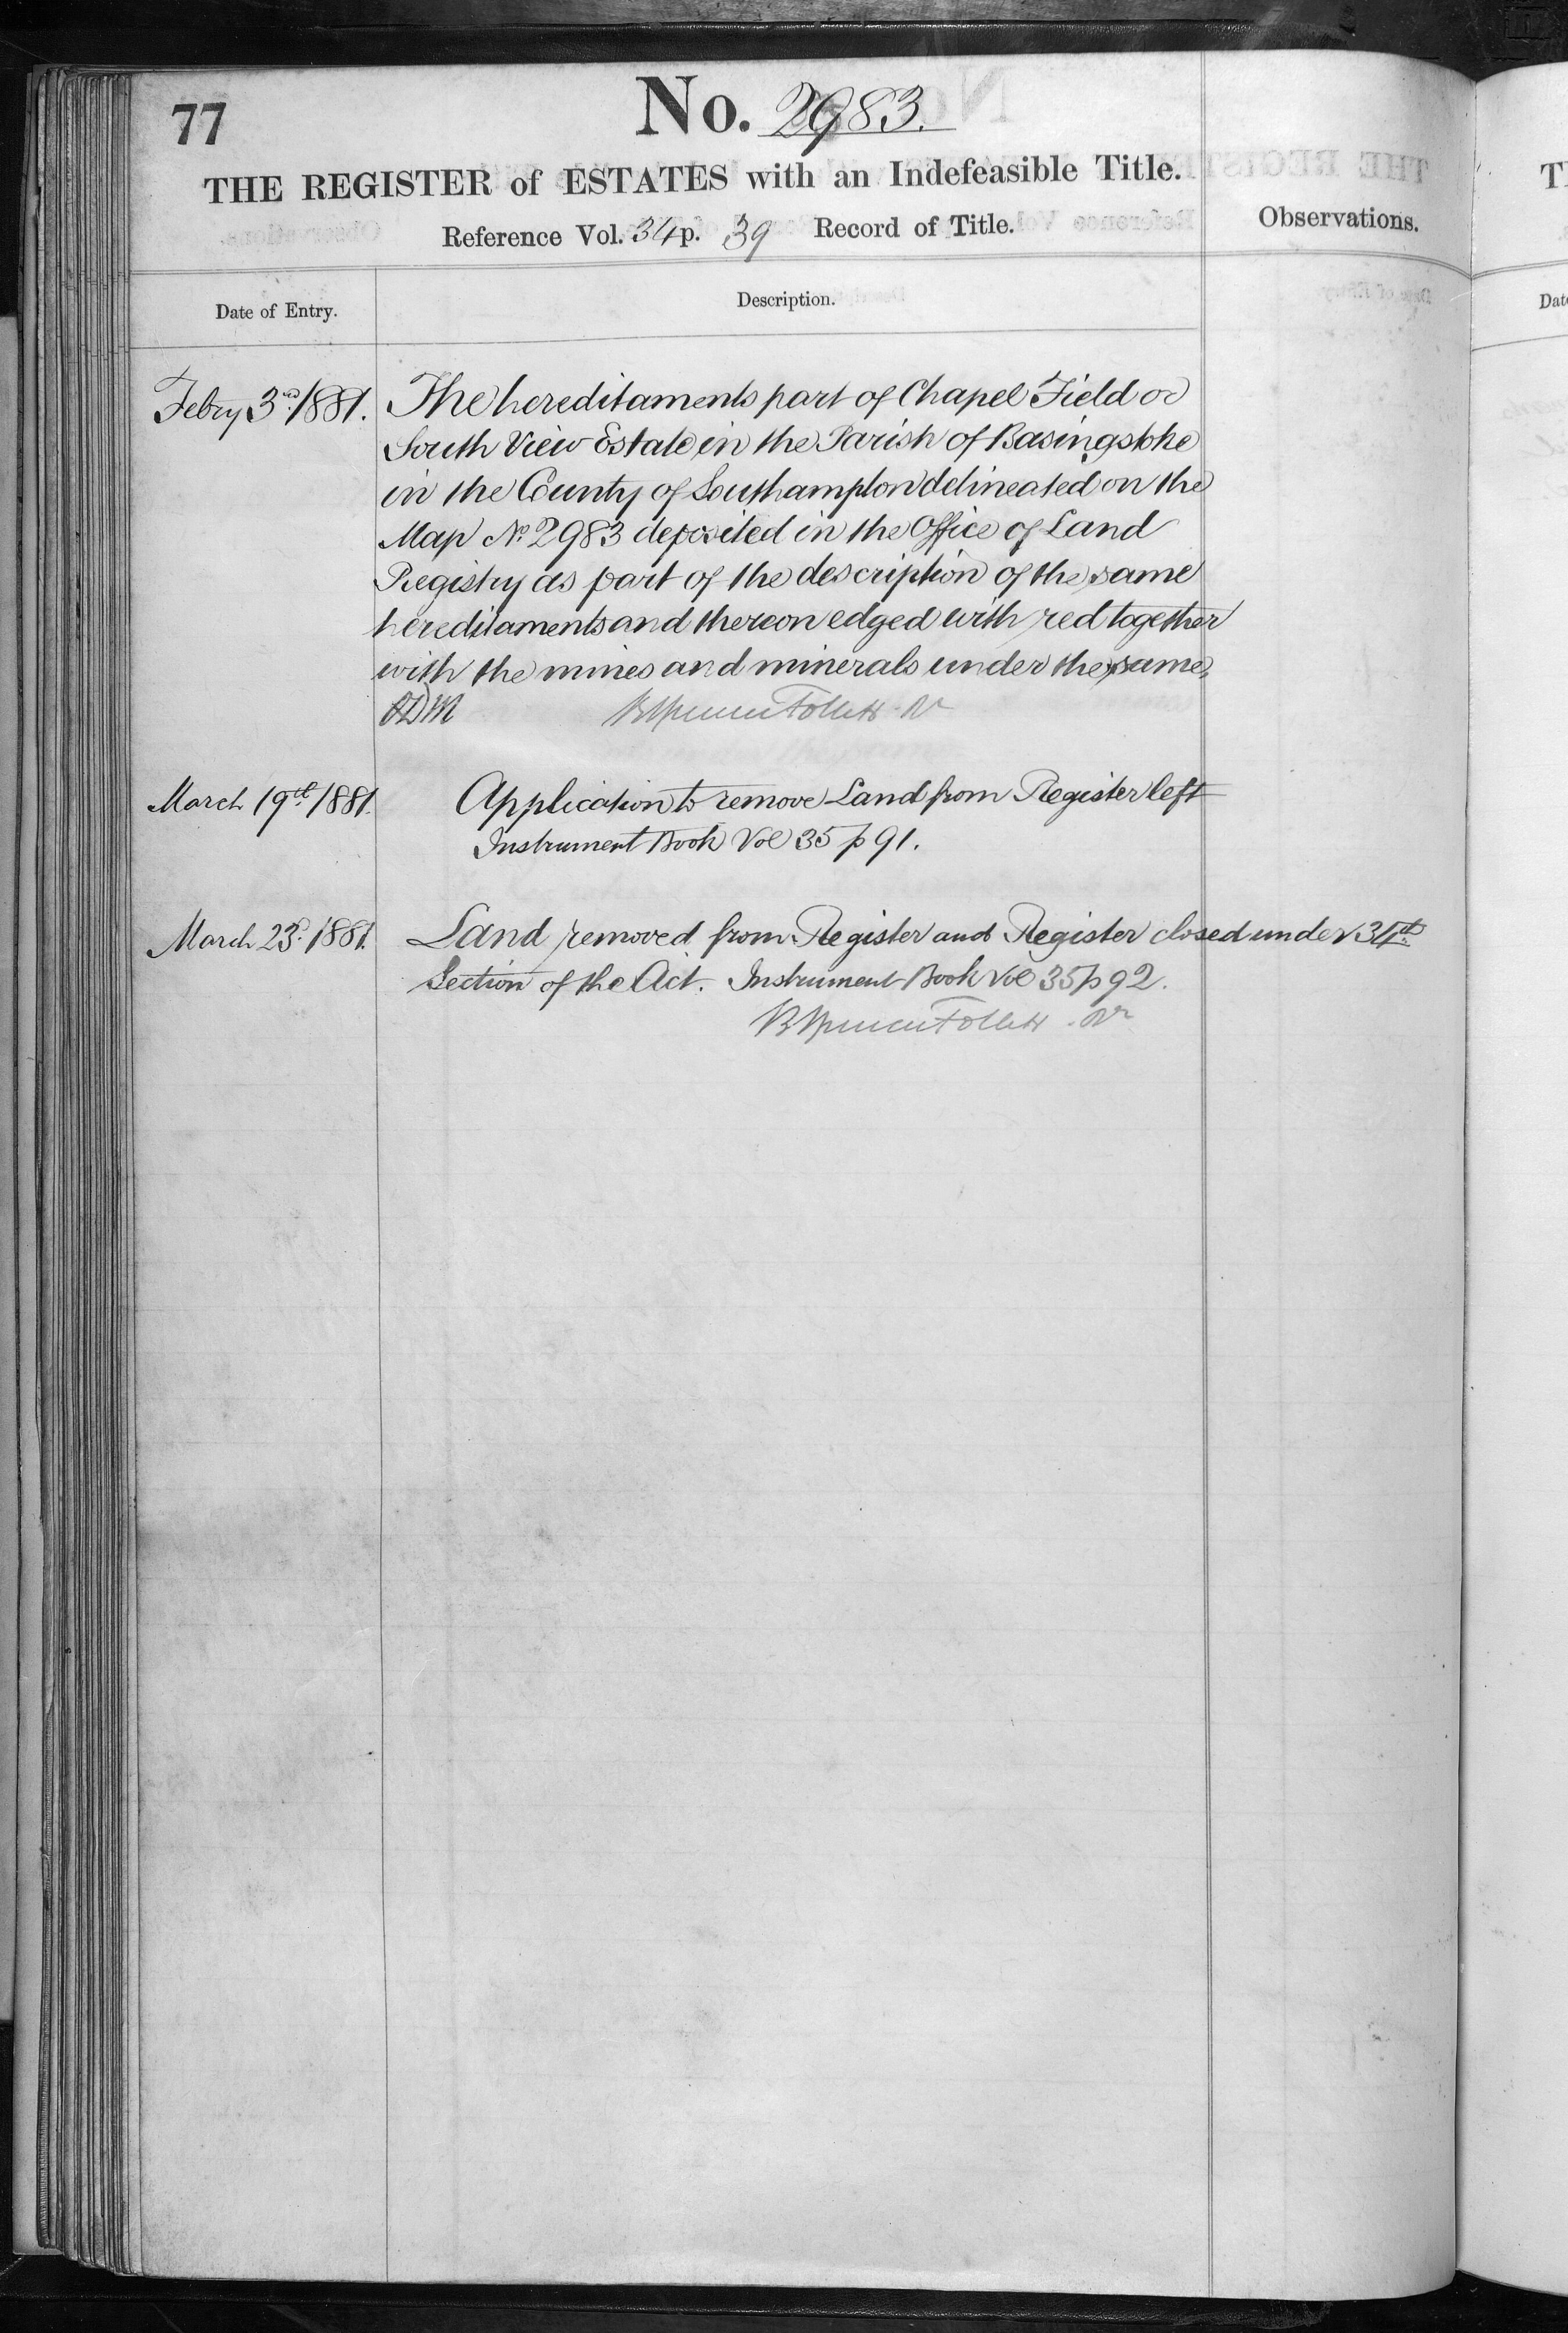 77
No. 2983.
THE REGISTER of ESTATES with an Indefeasible Title.
Reference Vol. 34 p. 39 Record of Title.
Observations.
Date of Entry.
Description.
Febry 3rd 1881. The hereditaments part of Chapel Field or
South View Estate in the Parish of Basingstoke
in the County of Southampton delineated on the
Map No. 2983 deposited in the Office of Land
Registry as part of the description of the same
hereditaments and thereon edged with red together
with the mines and minerals under the same,
Follett
March 19th 1881. Application to remove Land from Register left
Instrument Book Vol 35 p 91.
March 23d. 1881. Land removed from Register and Register closed under 34th
Section of the Act. Instrument Book Vol 35 p 92.
Follett